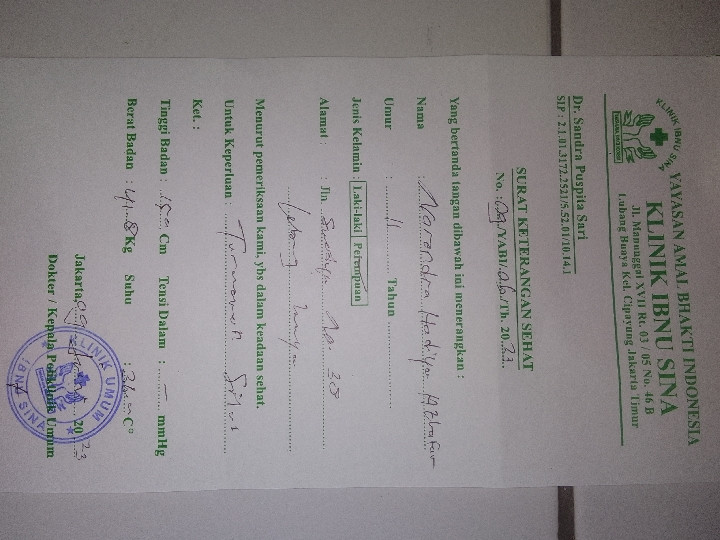 KLINIK IBNU SINA
YAYASAN AMAL BHAKTI INDONESIA
KLINIK IBNU SINA
Jl. Manunggal XVII Rt. 03 / 05 No. 46 B
Lubang Buaya Kel. Cipayung Jakarta Timur
Dr. Sandra Puspita Sari
SIP : 2.1.01.3172.2521/5.52.01/10.14.1
SURAT KETERANGAN SEHAT
No. : /YABI/ /Th. 2023
Yang bertanda tangan dibawah ini menerangkan :
Nama : Narendra Hadiya
Umur : 11 Tahun
Jenis Kelamin : Laki-laki Perempuan
Alamat : Jln. No. 38
Menurut pemeriksaan kami, ybs dalam keadaan sehat.
Untuk Keperluan : Turnamen
Ket. :
Tinggi Badan : 150 Cm Tensi Dalam : - mmHg
Berat Badan : 41.8 Kg Suhu : C°
Jakarta, 2023
Dokter / Kepala Poliklinik Umum
KLINIK UMUM
IBNA SINA